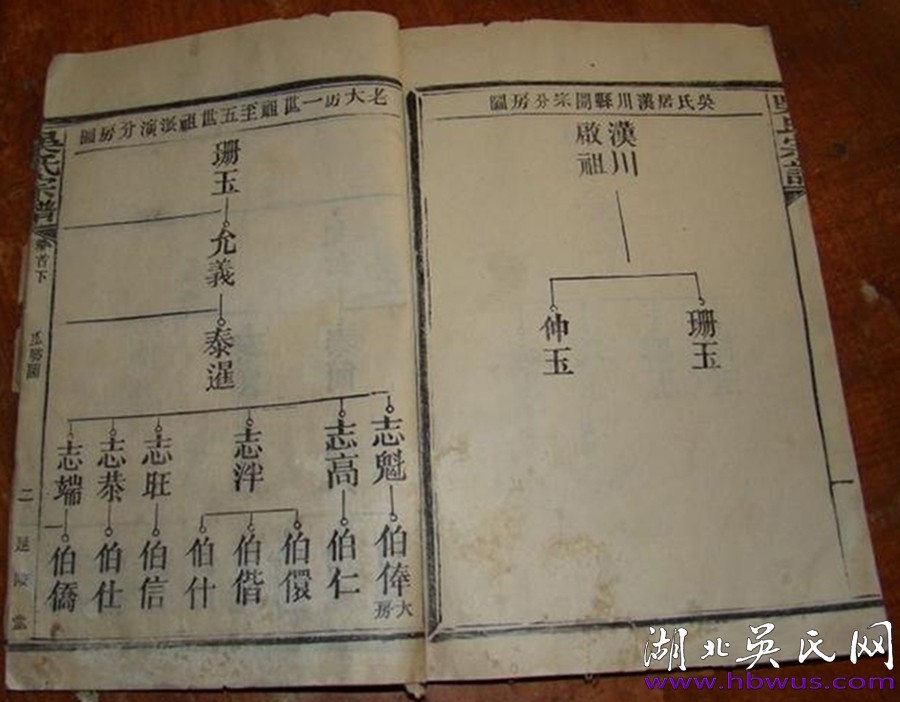 吳氏宗譜
吳氏居漢川縣開宗分房圖
漢川
啟祖
珊玉
仲玉
老大房一世祖至五世祖派演分房圖
珊玉
允義
泰暹
志魁
志高
志泮
志旺
志恭
志端
伯俸
大房
伯仁
伯儇
伯偕
伯什
伯信
伯仕
伯僑
吳氏宗譜
卷首下
瓜瓞圖
二
延陵堂
湖北吴氏网
www.hbwus.com